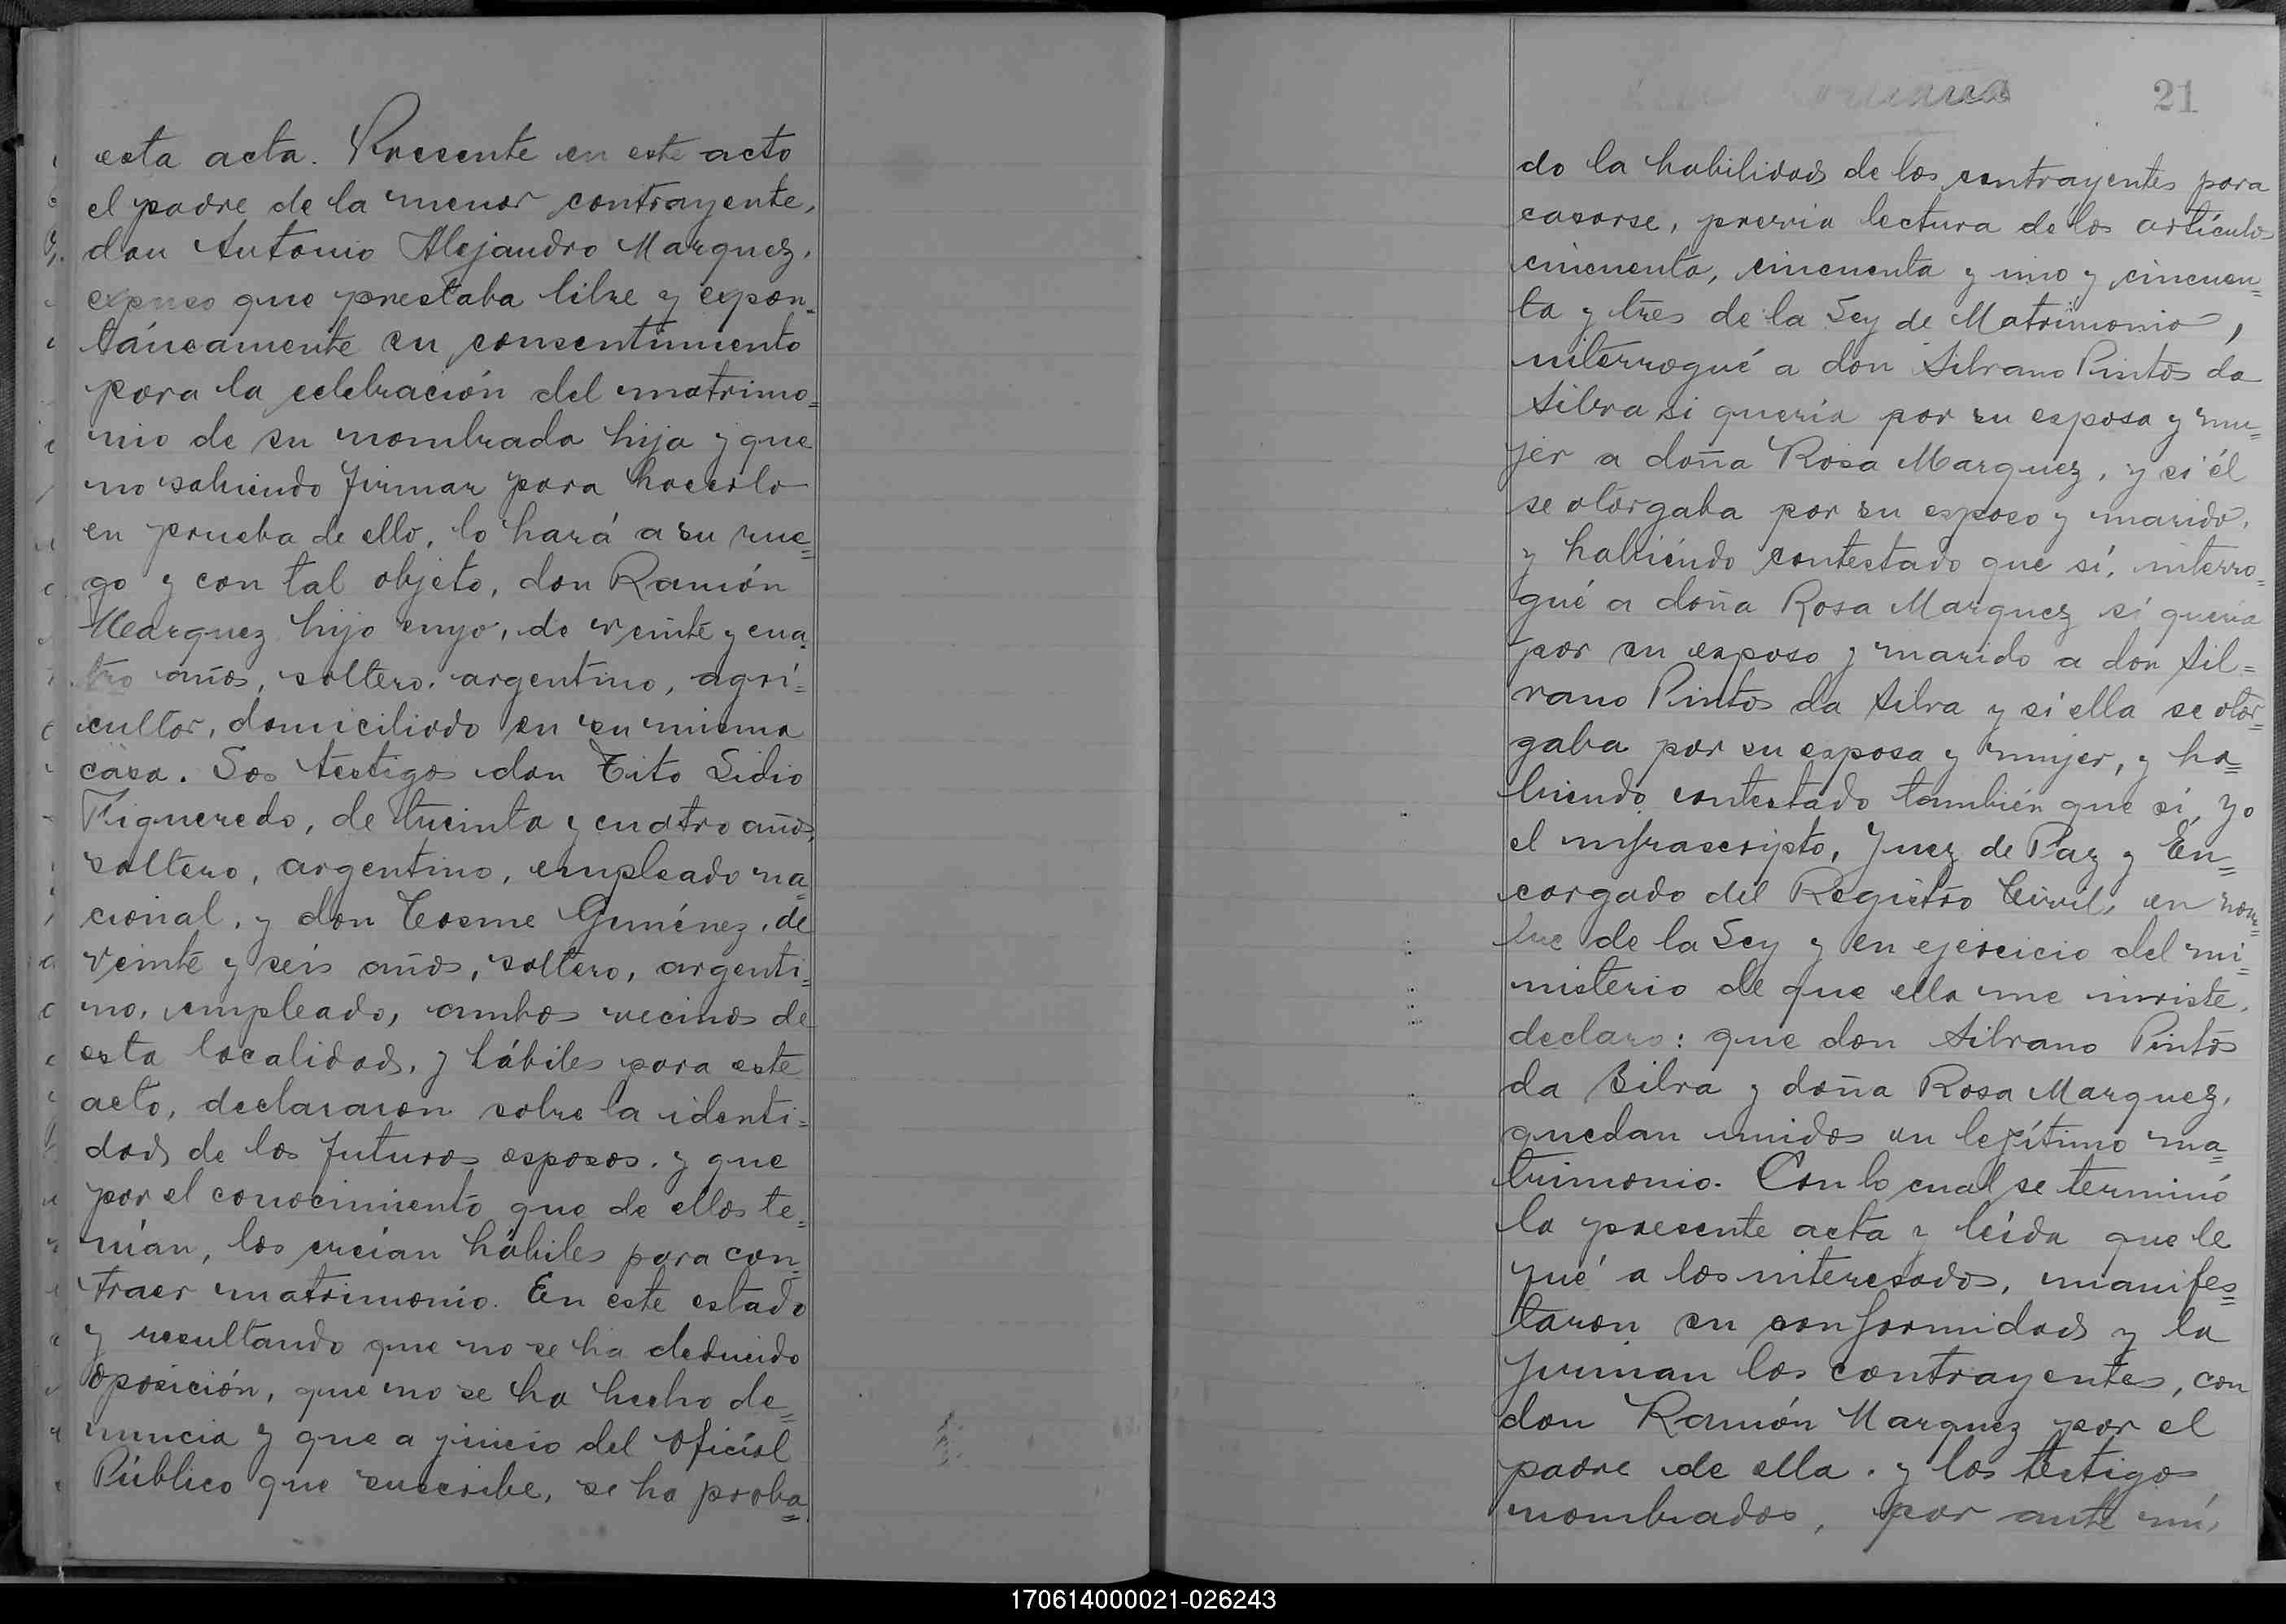 esta acta. Presente en este acto
el padre de la menor contrayente,
don Antonio Alejandro Marquez,
expuso que prestaba libre y expon=
táneamente su consentimiento
para la celebración del matrimo=
nio de su nombrada hija y que
no sabiendo firmar para hacerlo
en prueba de ello, lo hará a su rue=
go y con tal objeto, don Ramón
Marquez hijo suyo, de veinte y cua=
tro años, soltero, argentino, agri=
cultor, domiciliado en su misma
casa. Los testigos don Tito Lidio
Figueredo, de treinta y cuatro años,
soltero, argentino, empleado na=
cional, y don Cosme Giménez, de
veinte y seis años, soltero, argenti=
no, empleado, ambos vecinos de
esta localidad, y hábiles para este
acto, declararon sobre la identi=
dad de los futuros esposos, y que
por el conocimiento que de ellos te=
nían, los creían hábiles para con=
traer matrimonio. En este estado
y resultando que no se ha deducido
oposición, que no se ha hecho de=
nuncia y que a juicio del Oficial
Público que suscribe, se ha proba=
21
do la habilidad de los contrayentes para
casarse, previa lectura de los artículos
cincuenta, cincuenta y uno y cincuen=
ta y tres de la Ley de Matrimonio,
interrogué a don Silvano Pintos da
Silva si quería por su esposa y mu=
jer a doña Rosa Marquez, y si él
se otorgaba por su esposo y marido,
y habiéndo contestado que sí, interro=
gué a doña Rosa Marquez si quería
por su esposo y marido a don Sil=
vano Pintos da Silva y si ella se otor=
gaba por su esposa y mujer, y ha=
biendo contestado también que sí, yo
el infrascripto, Juez de Paz y En=
cargado del Registro Civil, en nom=
bre de la Ley y en ejercicio del mi=
nisterio de que ella me inviste,
declaro: que don Silvano Pintos
da Silva y doña Rosa Marquez,
quedan unidos en legítimo ma=
trimonio. Con lo cual se terminó
la presente acta y leída que le
fué a los interesados, manifes=
taron su conformidad y la
firman los contrayentes, con
don Ramón Marquez por el
padre de ella, y los testigos
nombrados, por ante mí,
170614000021-026243